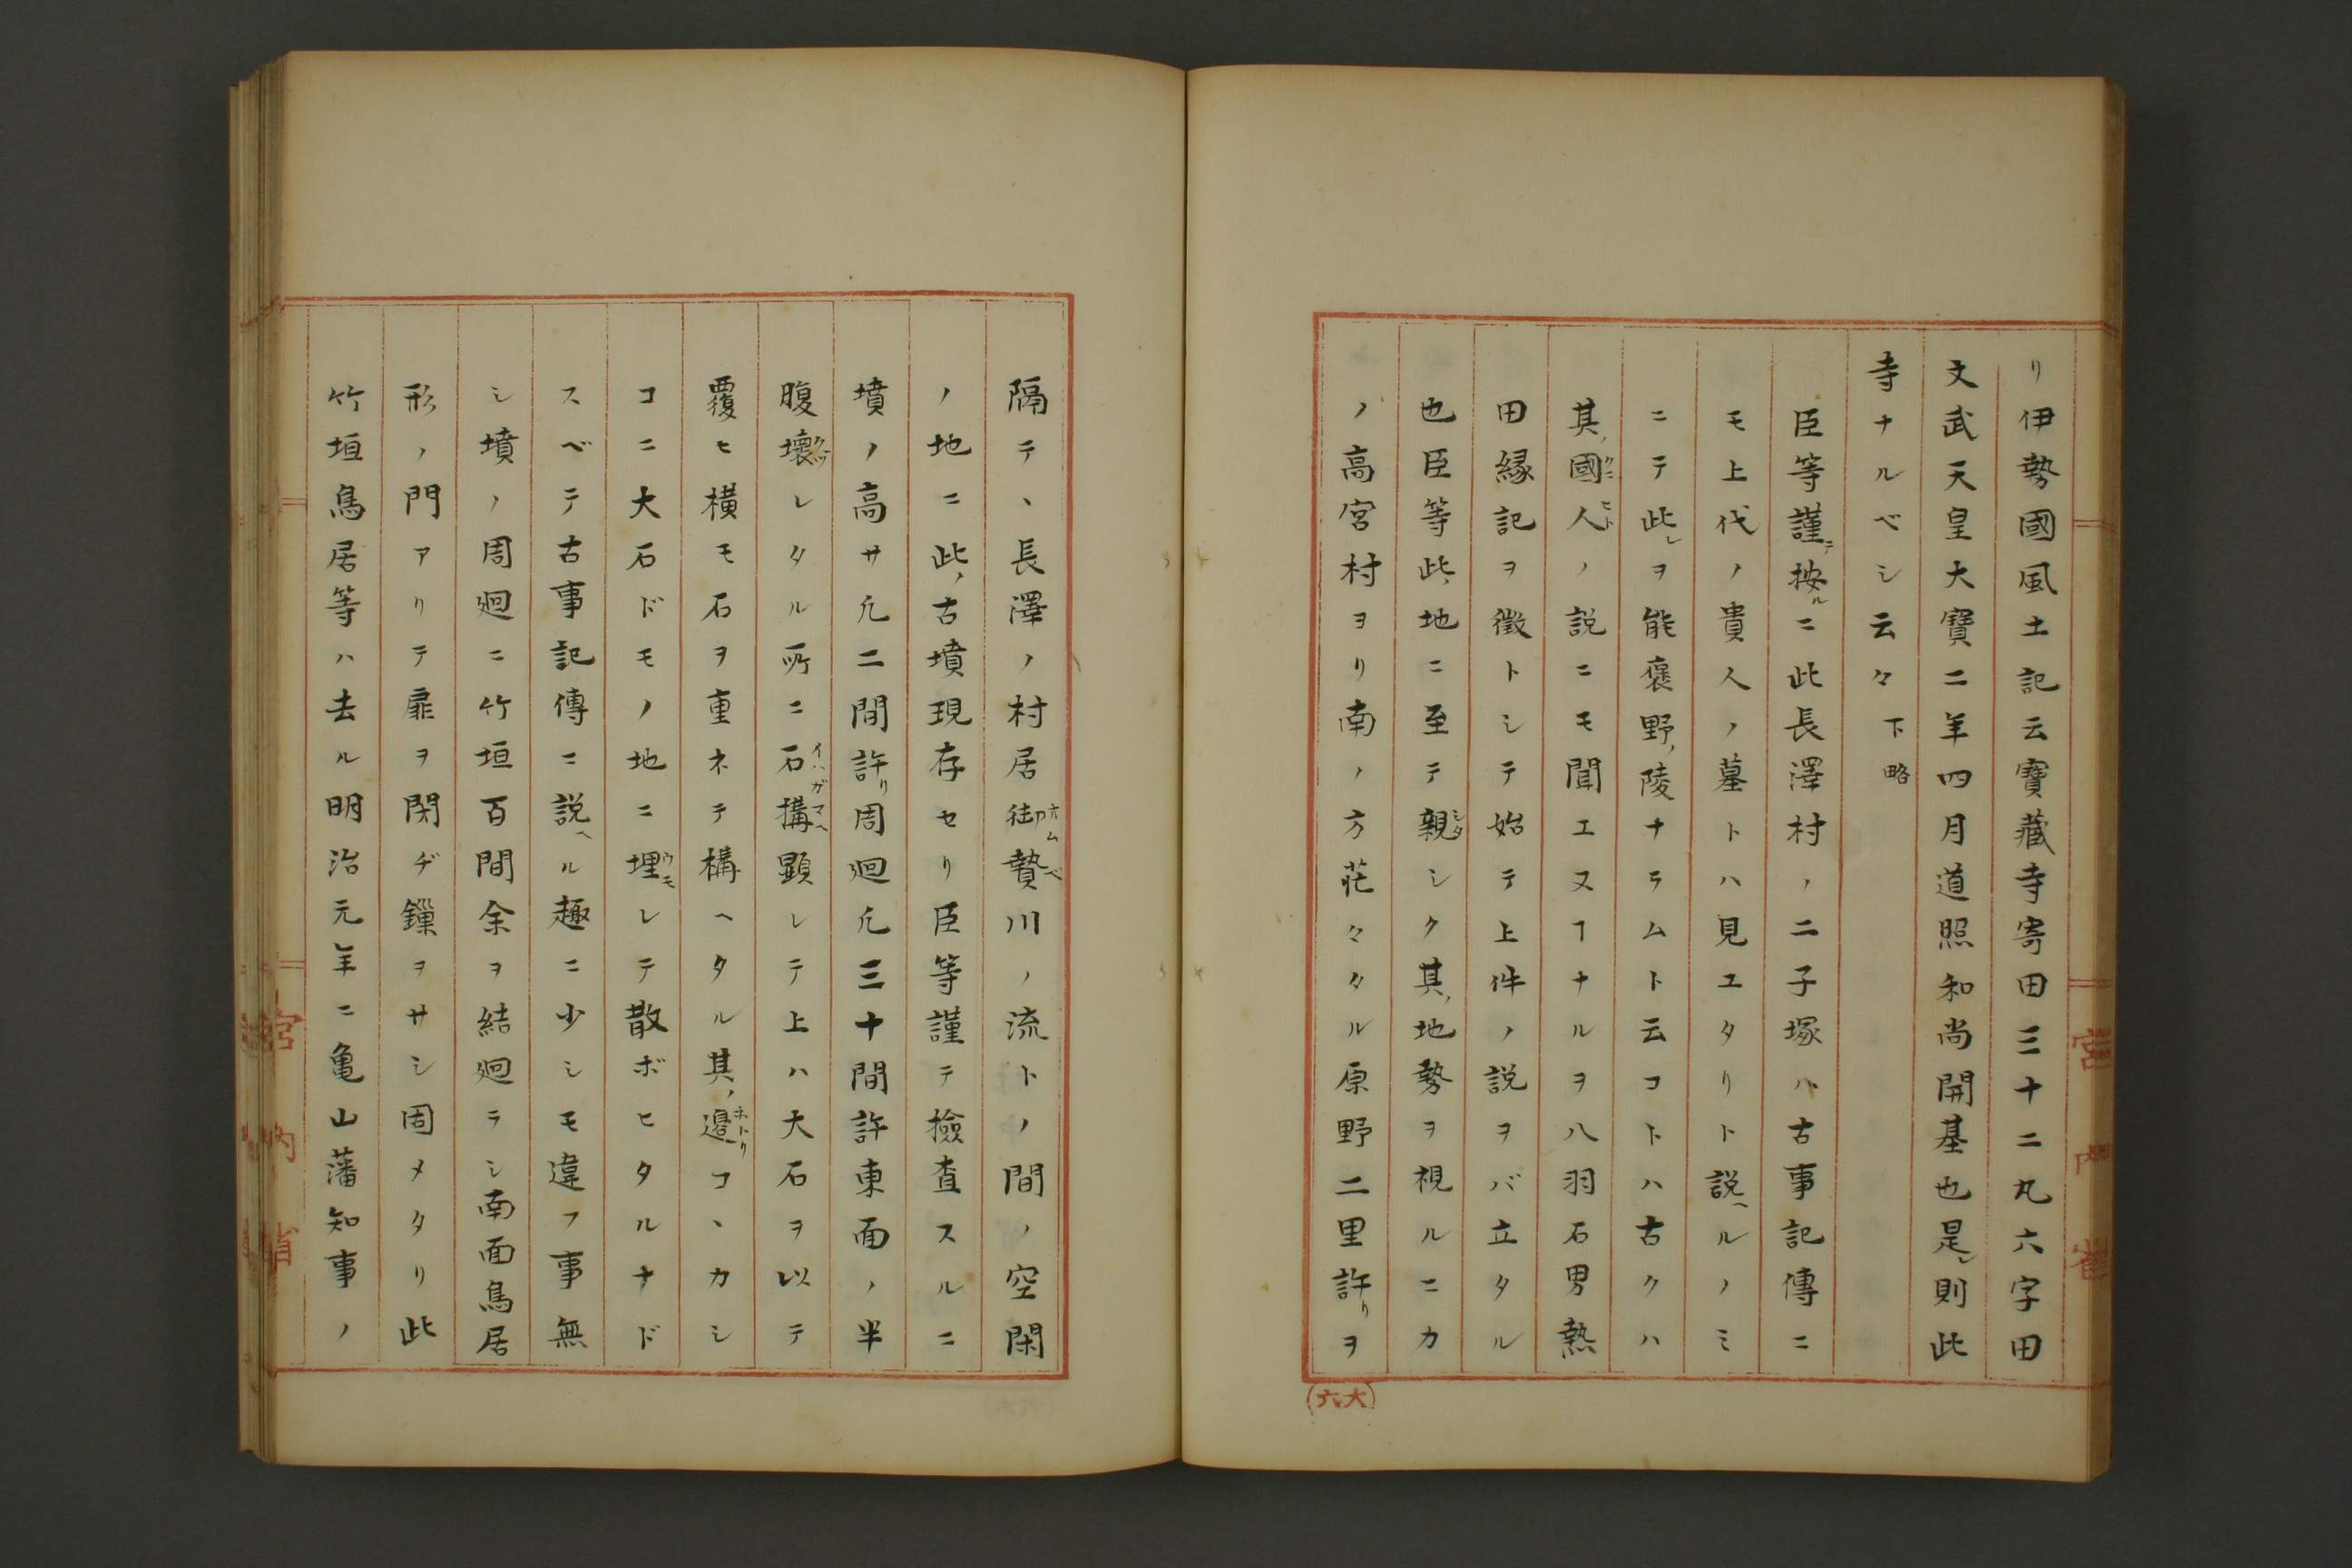 リ伊勢國風土記云寶藏寺寄田三十二丸六字田
文武天皇大寶二年四月道照和尚開基也是レ則此
寺ナルベシ云々下略
臣等謹テ按ルニ此長澤村ノ二子塚ハ古事記傳ニ
モ上代ノ貴人ノ墓トハ見エタリト説ヘルノミ
ニテ此レヲ能褒野ノ陵ナラムト云コトハ古クハ
其ノ國人ノ説ニモ聞エヌヿナルヲ八羽石男熱
田縁記ヲ徴トシテ始テ上件ノ説ヲバ立タル
也臣等此ノ地ニ至テ親シク其ノ地勢ヲ視ルニカ
ノ高宮村ヨリ南ノ方茫々タル原野二里許リヲ
隔テヽ長澤ノ村居御贄川ノ流トノ間ノ空閑
ノ地ニ此ノ古墳現存セリ臣等謹テ撿査スルニ
墳ノ高サ凡二間許リ周廻凡三十間許東面ノ半
腹壞レタル所ニ石構顕レテ上ハ大石ヲ以テ
覆ヒ横モ石ヲ重ネテ構ヘタル其ノ邊コヽカシ
コニ大石ドモノ地ニ埋レテ散ボヒタルナド
スベテ古事記傳ニ説ヘル趣ニ少シモ違フ事無
シ墳ノ周廻ニ竹垣百間余ヲ結廻ラシ南面鳥居
形ノ門アリテ扉ヲ閉ヂ鏁ヲサシ固メタリ此
竹垣鳥居等ハ去ル明治元年ニ亀山藩知事ノ
宮内省
(六大)